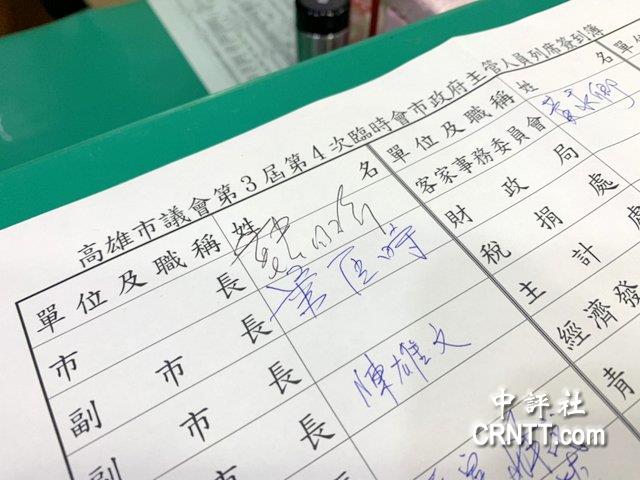 高雄市議會第3屆第4次臨時會市政府主管人員列席簽到簿
單位及職稱 姓名 單位及職稱 姓名 單位
市長
副市長 葉匡時
副市長 陳雄文
客家事務委員會 黃永卿
財政局
稅捐處
主計處
經濟發
青
中評社
CRNTT.com